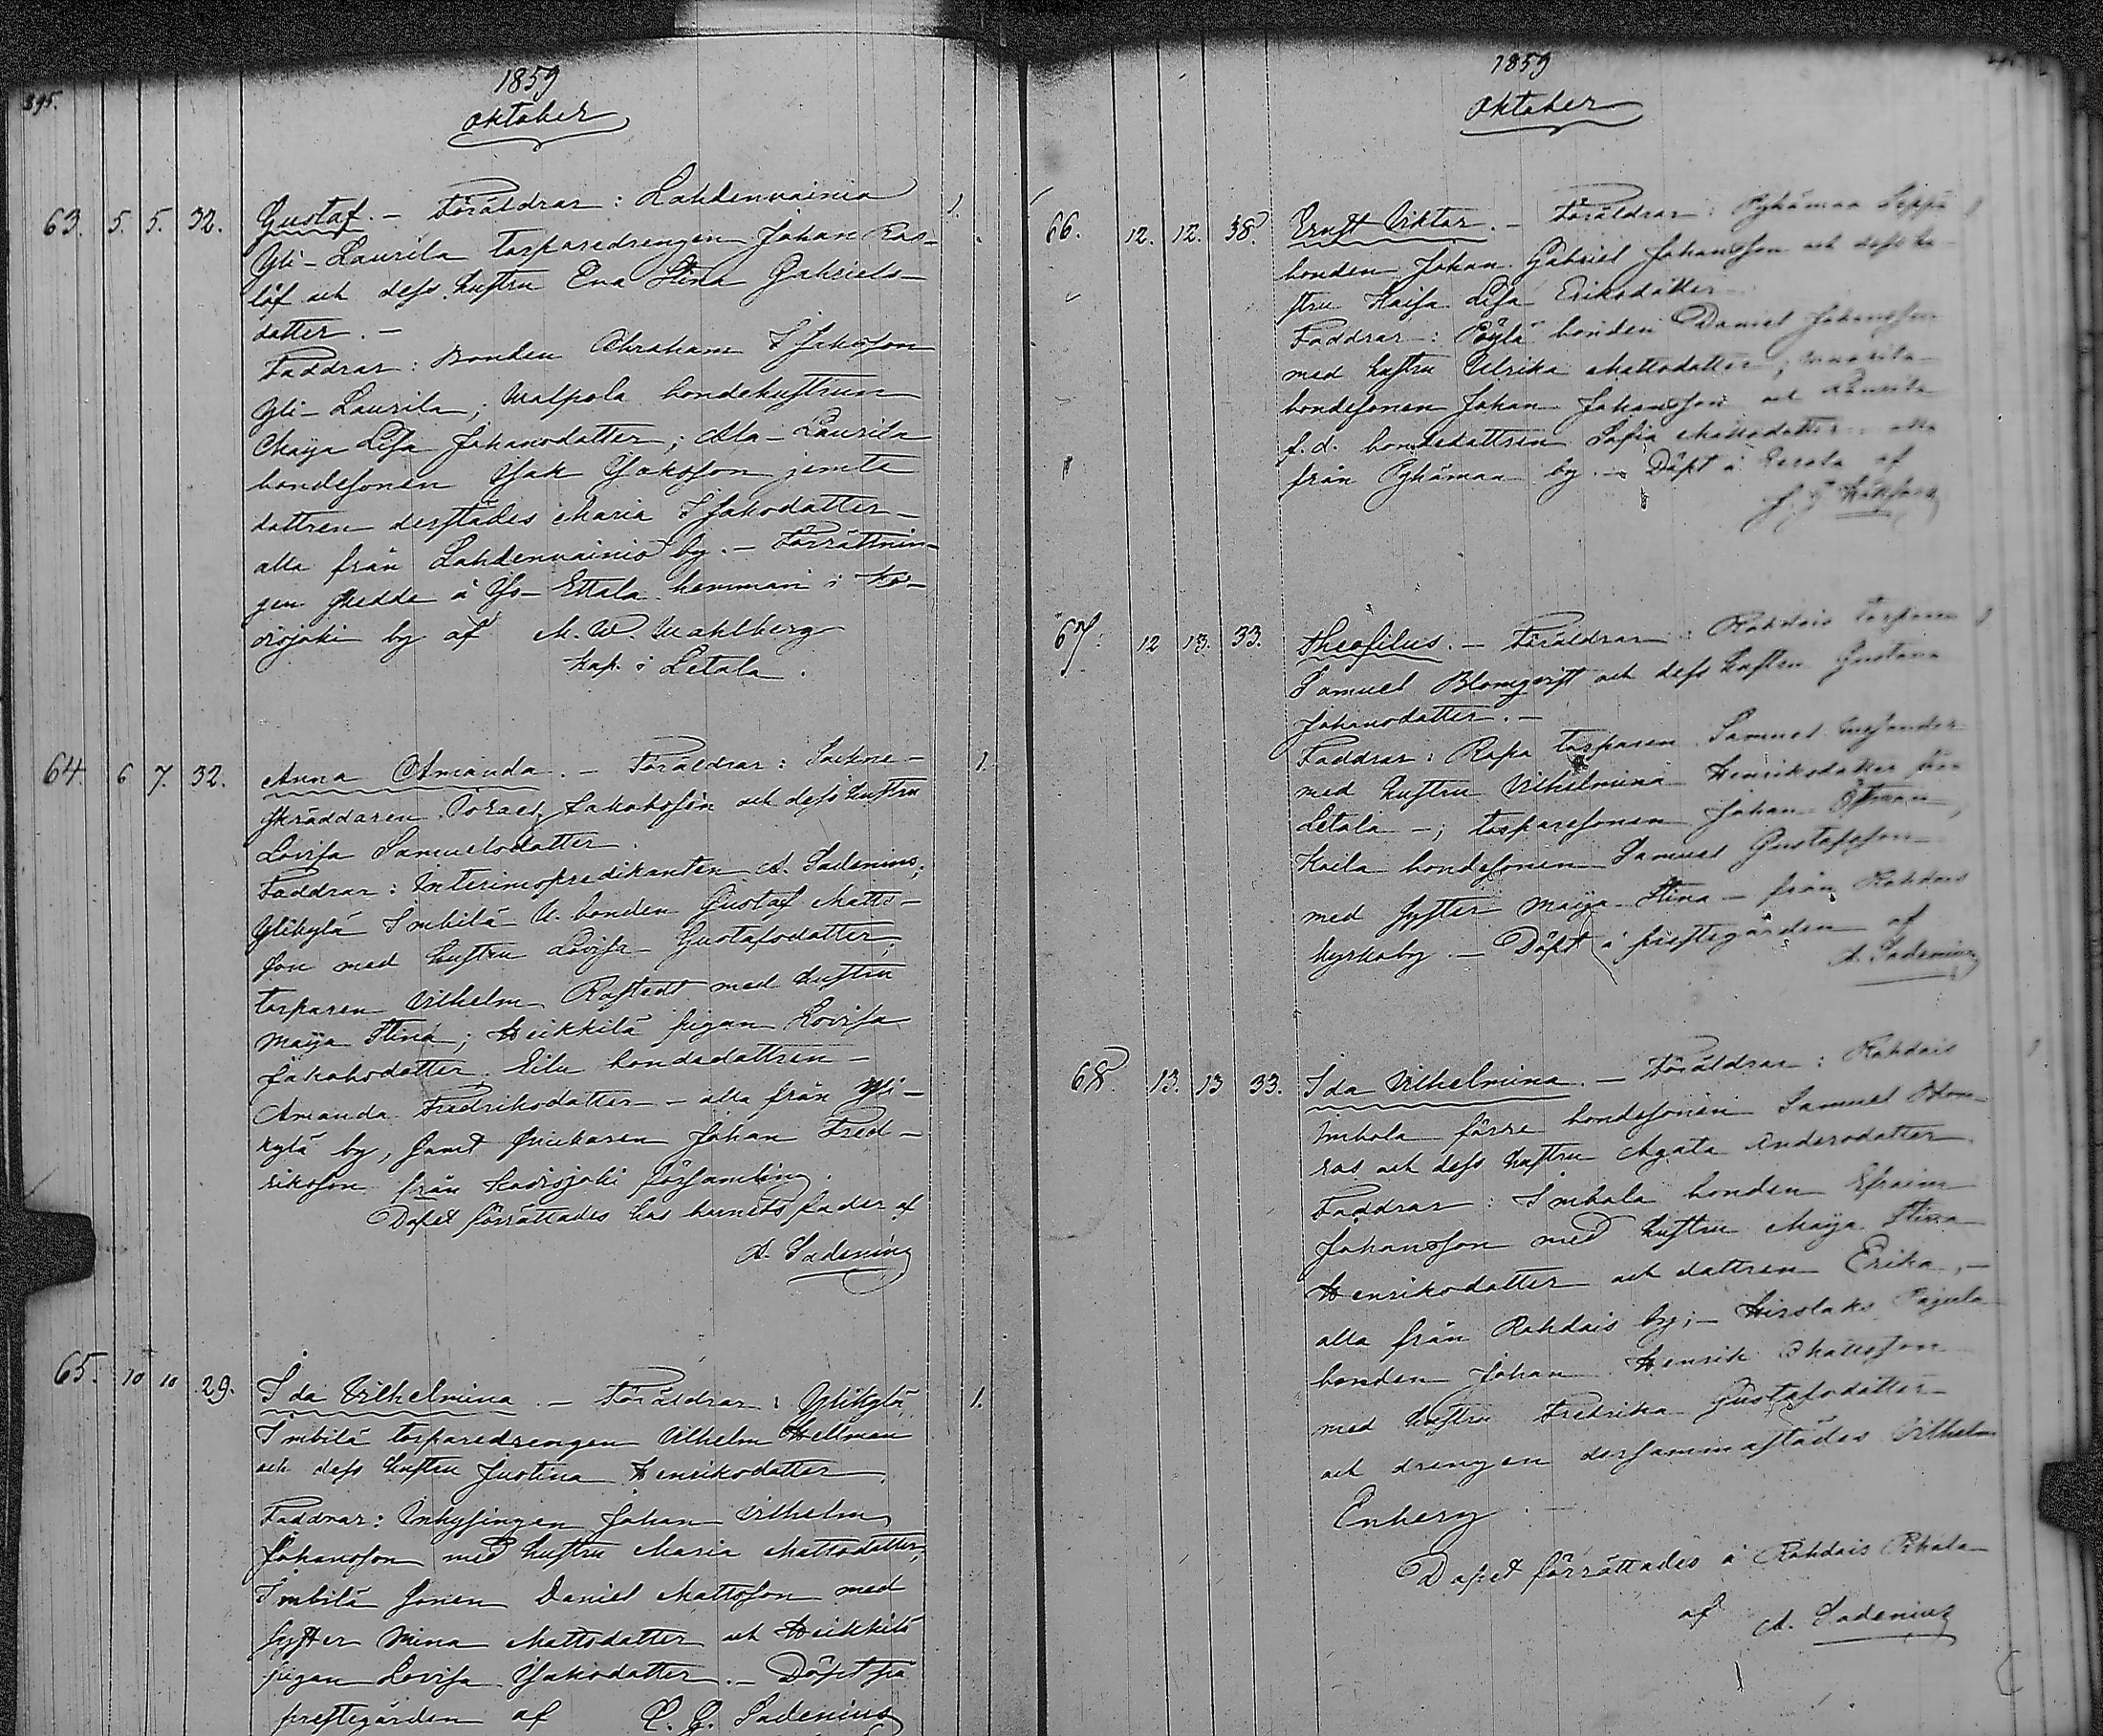 395.
1859
Oktober
63. 5. 5. 32. Gustaf. – Föräldrar: Lahdenvainio 1.
Yli-Laurila torparedrengen Johan Ros-
löf och dess hustru Eva Stina Gabriels-
dotter. –
Faddrar: Bonden Abraham Isaksson
Yli-Laurila; Walpola bondehustrun
Maija Lisa Johansdotter; Ala-Laurila
bondesonen Isak Isaksson jemte
dottren derstädes Maria Isaksdotter –
alla från Lahdenvainio by. – Förrättnin-
gen skedde å Iso-Ettala hemman i Ko-
disjoki by af M. W. Wahlberg
Kap. i Letala.
64. 6 7. 32. Anna Amanda. – Föräldrar: Sockne- 1.
skräddaren Israel Jakobsson och dess hustru
Lovisa Samuelsdotter.
Faddrar: Interimspredikanten A. Sadenius;
Ylikylä Imbilä U. bonden Gustaf Matts-
son med hustru Lovisa Gustafsdotter;
torparen Vilhelm Rostedt med hustru
Maija Stina; Heikkilä pigan Lovisa
Jakobsdotter. Eilu bondedottren –
Amanda Fredriksdotter – alla från Yli-
kylä by, samt snickaren Johan Fred-
riksson från Hodisjoki församling.
Dopet förrättades hos barnets fader af
A. Sadenius
65. 10 10 29. Ida Vilhelmina. – Föräldrar: Ylikylä 1.
Imbilä torparedrengen Vilhelm Hellman
och dess hustru Justina Henriksdotter.
Faddrar: Inhysingen Johan Vilhelm
Johansson med hustru Maria Mattsdotter,
Imbilä sonen Daniel Mattsson med
syster Mina Mattsdotter och Heikkilä
pigan Lovisa Isaksdotter. – Döpt på
prestegården af C. G. Sadenius
1859
Oktober
66. 12. 12. 38. Ernst Viktor. – Föräldrar: Pyhämaa Seppä
bonden Johan Gabriel Johansson och dess hu-
stru Kaisa Lisa Eriksdotter
Faddrar: Pöylä bonden Daniel Johansson
med hustru Ulrika Mattsdotter;
bondesonen Johan Johansson och
f. d. bondedottren Sofia Mattsdotter – alla
från Pyhämaa by. – Döpt å af
67. 12 13. 33. Theofilus. – Föräldrar: Rohdais torparen
Samuel Blomqvist och dess hustru Gustava
Johansdotter. –
Faddrar: Ropa torparen Samuel
med hustru Vilhelmina Henriksdotter från
Letala –; torparesonen Johan Östman,
Kaila bondesonen Samuel Gustafsson
med syster Maija Stina – från Rohdais
kyrkoby. – Döpt i prestegården af
A. Sadenius
68. 13. 13 33. Ida Vilhelmina. – Föräldrar: Rohdais
Imbola förre bondesonen Samuel Blom-
ros och dess hustru Agata Andersdotter.
Faddrar: Imbola bonden Efraim
Johansson med hustru Maija Stina
Henriksdotter och dottren Erika, –
alla från Rohdais by; – Hirslaks
bonden Johan Henrik Mattsson
med hustru Fredrika Gustafsdotter
och drengen dersammastädes Vilhelm
Enberg. –
Dopet förrättades å Rohdais Pihala
af A. Sadenius